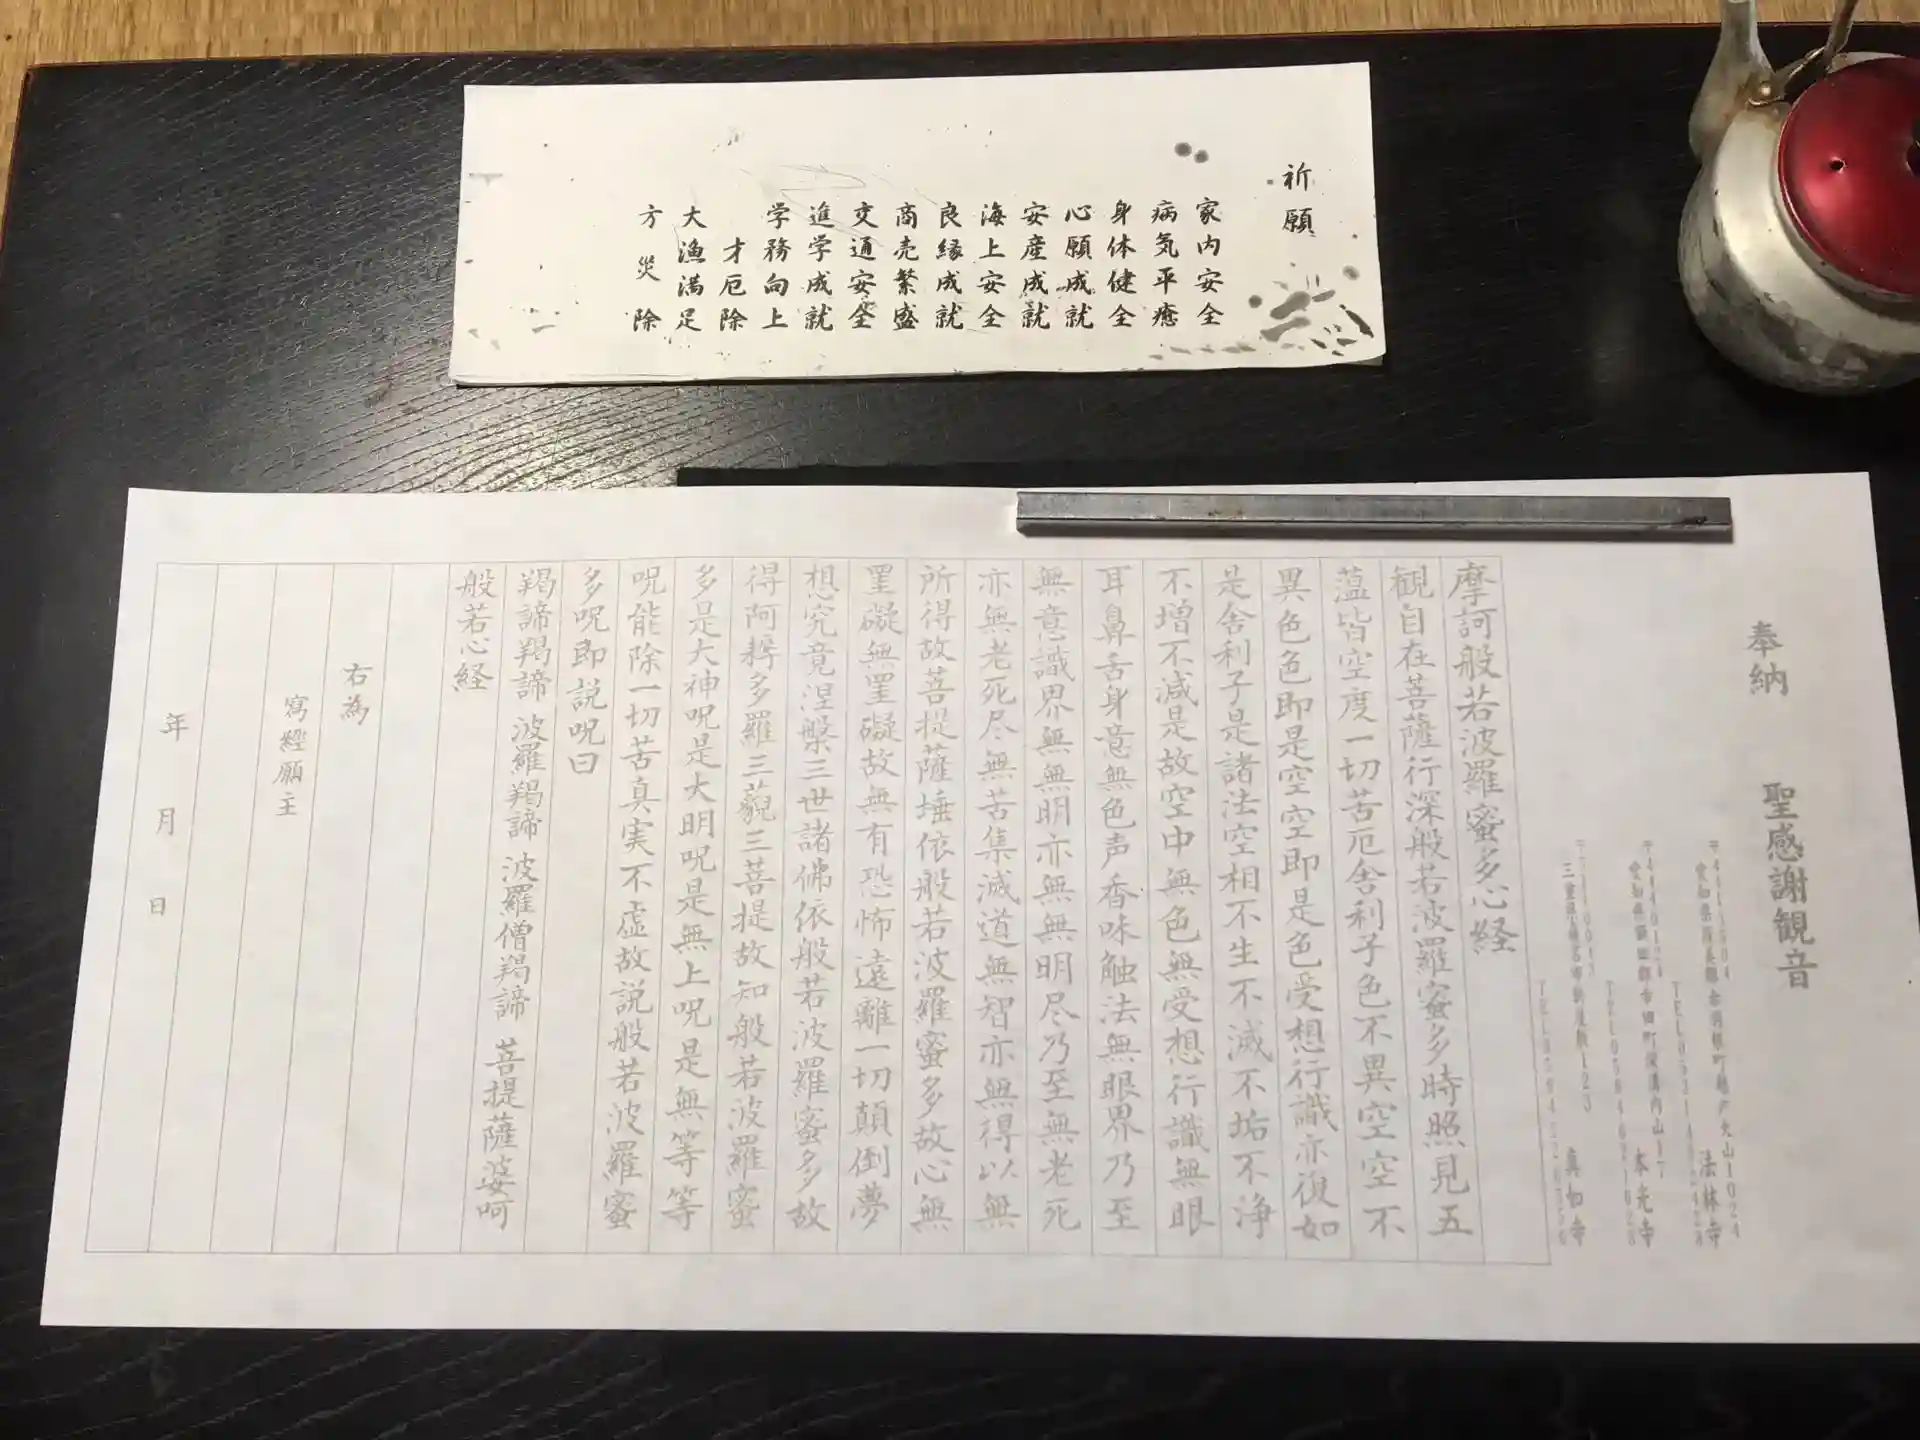 祈願
家内安全
病気平癒
身体健全
心願成就
安産成就
海上安全
良縁成就
商売繁盛
交通安全
進学成就
学務向上
才厄除
大漁満足
方災除
奉納 聖感謝観音
法林寺
本光寺
真如寺
摩訶般若波羅蜜多心経
観自在菩薩行深般若波羅蜜多時照見五
蘊皆空度一切苦厄舎利子色不異空空不
異色色即是空空即是色受想行識亦復如
是舎利子是諸法空相不生不滅不垢不浄
不増不減是故空中無色無受想行識無眼
耳鼻舌身意無色声香味触法無眼界乃至
無意識界無無明亦無無明尽乃至無老死
亦無老死尽無苦集滅道無智亦無得以無
所得故菩提薩埵依般若波羅蜜多故心無
罣礙無罣礙故無有恐怖遠離一切顛倒夢
想究竟涅槃三世諸佛依般若波羅蜜多故
得阿耨多羅三藐三菩提故知般若波羅蜜
多是大神呪是大明呪是無上呪是無等等
呪能除一切苦真実不虚故説般若波羅蜜
多呪即説呪曰
羯諦羯諦 波羅羯諦 波羅僧羯諦 菩提薩婆呵
般若心経
右為
寫經願主
年 月 日